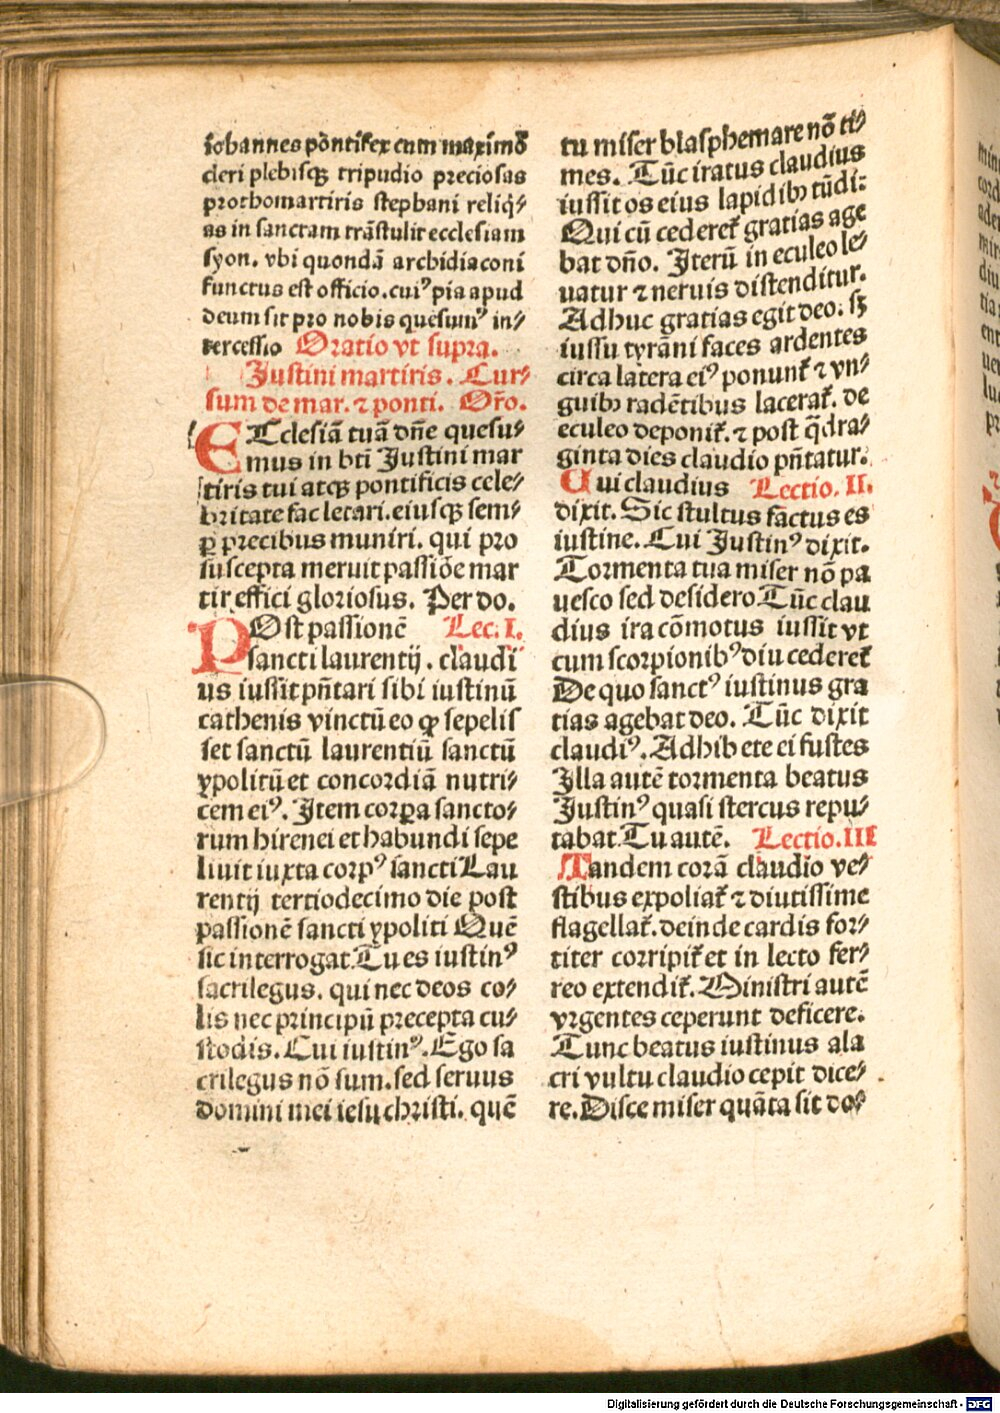 iohannes põntifex cum maximo
cleri plebisqꝫ tripudio preciosas
prothomartiris stephani reliq̃⸗
as in sanctam trãstulit ecclesiam
syon. vbi quondã archidiaconi
functus est officio. cuiꝰ pia apud
deum sit pro nobis quesumꝰ in⸗
tercessio Oratio vt supra.
Justini martiris. Cur⸗
sum de mar. ⁊ ponti. Or̃o.
ECclesiã tuã dñe quesu⸗
mus in bti Justini mar
tiris tui atqꝫ pontificis cele⸗
britate fac letari. eiusqꝫ sem⸗
ꝑ precibus muniri. qui pro
suscepta meruit passiõe mar
tir effici gloriosus. Per do.
POst passionẽ Lec. I.
sancti laurentij. claudi
us iussit pñtari sibi iustinũ
cathenis vinctũ eo ꝙ sepelis
set sanctũ laurentiũ sanctũ
ypolitũ et concordiã nutri⸗
cem eiꝰ. Item corꝑa sancto⸗
rum hirenei et habundi sepe
liuit iuxta corpꝰ sancti Lau
rentij tertiodecimo die post
passionẽ sancti ypoliti Quẽ
sic interrogat. Tu es iustinꝰ
sacrilegus. qui nec deos co⸗
lis nec principũ precepta cu⸗
stodis. Cui iustinꝰ. Ego sa
crilegus nõ sum. sed seruus
domini mei iesu christi. quẽ
tu miser blasphemare nõ ti⸗
mes. Tũc iratus claudius
iussit os eius lapidibꝫ tũdi:
Qui cũ cederet᷑ gratias age
bat dño. Iterũ in eculeo le⸗
uatur ⁊ neruis distenditur.
Adhuc gratias egit deo. sꝫ
iussu tyrãni faces ardentes
circa latera eiꝰ ponunt᷑ ⁊ vn⸗
guibꝫ radẽtibus lacerat᷑. de
eculeo deponit᷑. ⁊ post q̃dra⸗
ginta dies claudio pñtatur.
Cui claudius Lectio. II.
dixit. Sic stultus factus es
iustine. Cui Justinꝰ dixit.
Tormenta tua miser nõ pa
uesco sed desidero. Tũc clau
dius ira cõmotus iussit vt
cum scorpionibꝰ diu cederet᷑
De quo sanctꝰ iustinus gra
tias agebat deo. Tũc dixit
claudiꝰ. Adhibete ei fustes
Illa autẽ tormenta beatus
Justinꝰ quasi stercus repu⸗
tabat. Tu autẽ. Lectio. III
Tandem corã claudio ve⸗
stibus expoliat᷑ ⁊ diutissime
flagellat᷑. deinde cardis for⸗
titer corripit᷑ et in lecto fer⸗
reo extendit᷑. Ministri autẽ
vrgentes ceperunt deficere.
Tunc beatus iustinus ala
cri vultu claudio cepit dice⸗
re. Disce miser quãta sit do⸗
Digitalisierung gefördert durch die Deutsche Forschungsgemeinschaft - DFG